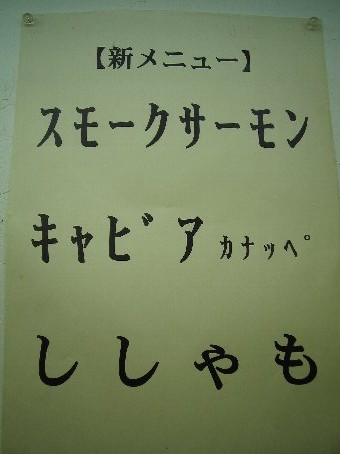 【新メニュー】
スモークサーモン
キャビア カナッペ
ししゃも